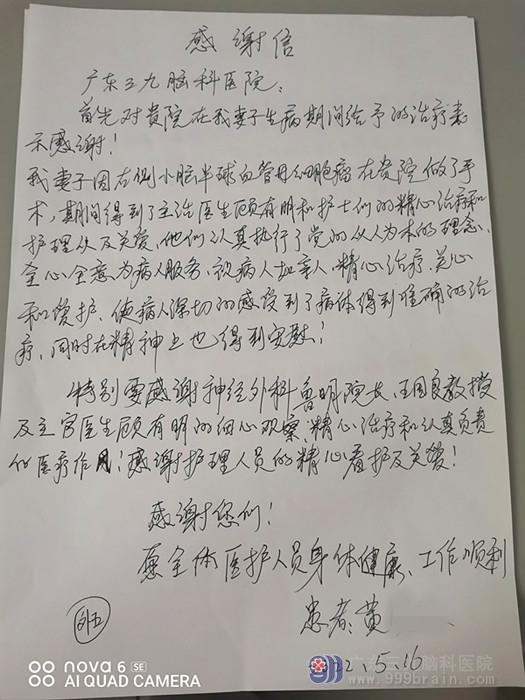 感谢信
广东三九脑科医院:
首先对贵院在我妻子生病期间给予的治疗表
示感谢!
我妻子因右侧小脑半球血管母细胞瘤在贵院做了手
术,期间得到了主治医生顾有明和护士们的精心治疗和
护理以及关爱,他们认真执行了党的以人为本的理念、
全心全意为病人服务、视病人如亲人、精心治疗、关心
和爱护、使病人深切的感受到了病体得到准确的治
疗,同时在精神上也得到安慰!
特别要感谢神经外科鲁明院长、王国良教授
及主管医生顾有明的细心观察、精心治疗和认真负责
的医疗作风!感谢护理人员的精心看护及关爱!
感谢您们!
愿全体医护人员身体健康、工作顺利
患者:黄
22.5.16
nova 6 SE
AI QUAD CAMERA
脑科医院
www.999brain.com